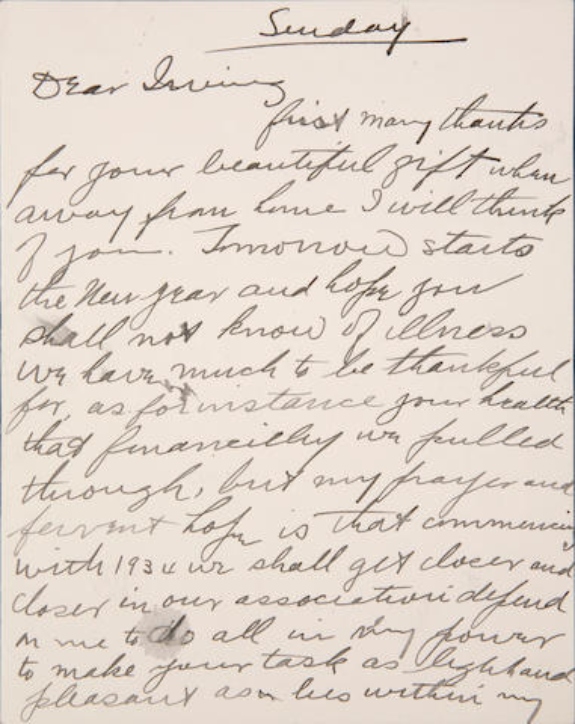 Sunday
Dear Irving
first many thanks
for your beautiful gift when
away from home I will think
of you. Tomorrow starts
the New year and hope you
shall not know of illness
we have much to be thankful
for, as for instance your health
that financially we pulled
through, but my prayer and
fervent hope is that commencing
with 1934 we shall get closer and
closer in our association depend
on me to do all in my power
to make your task as light and
pleasant as lies within my